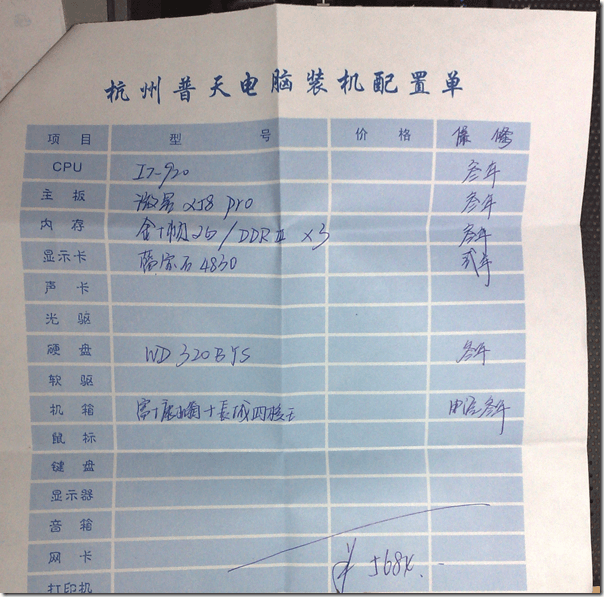 杭州普天电脑装机配置单
项目 型号 价格 保修
CPU I7-920 叁年
主板 微星 X58 pro 叁年
内存 金士顿 2G/DDRIII X3 叁年
显示卡 蓝宝石 4830 贰年
声卡
光驱
硬盘 WD 320 叁年
软驱
机箱 富士康 + 长城四核王 电源叁年
鼠标
键盘
显示器
音箱
网卡 ¥ 568
打印机